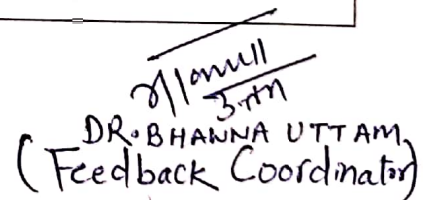 DR. BHANNA UTTAM
(Feedback Coordinator)